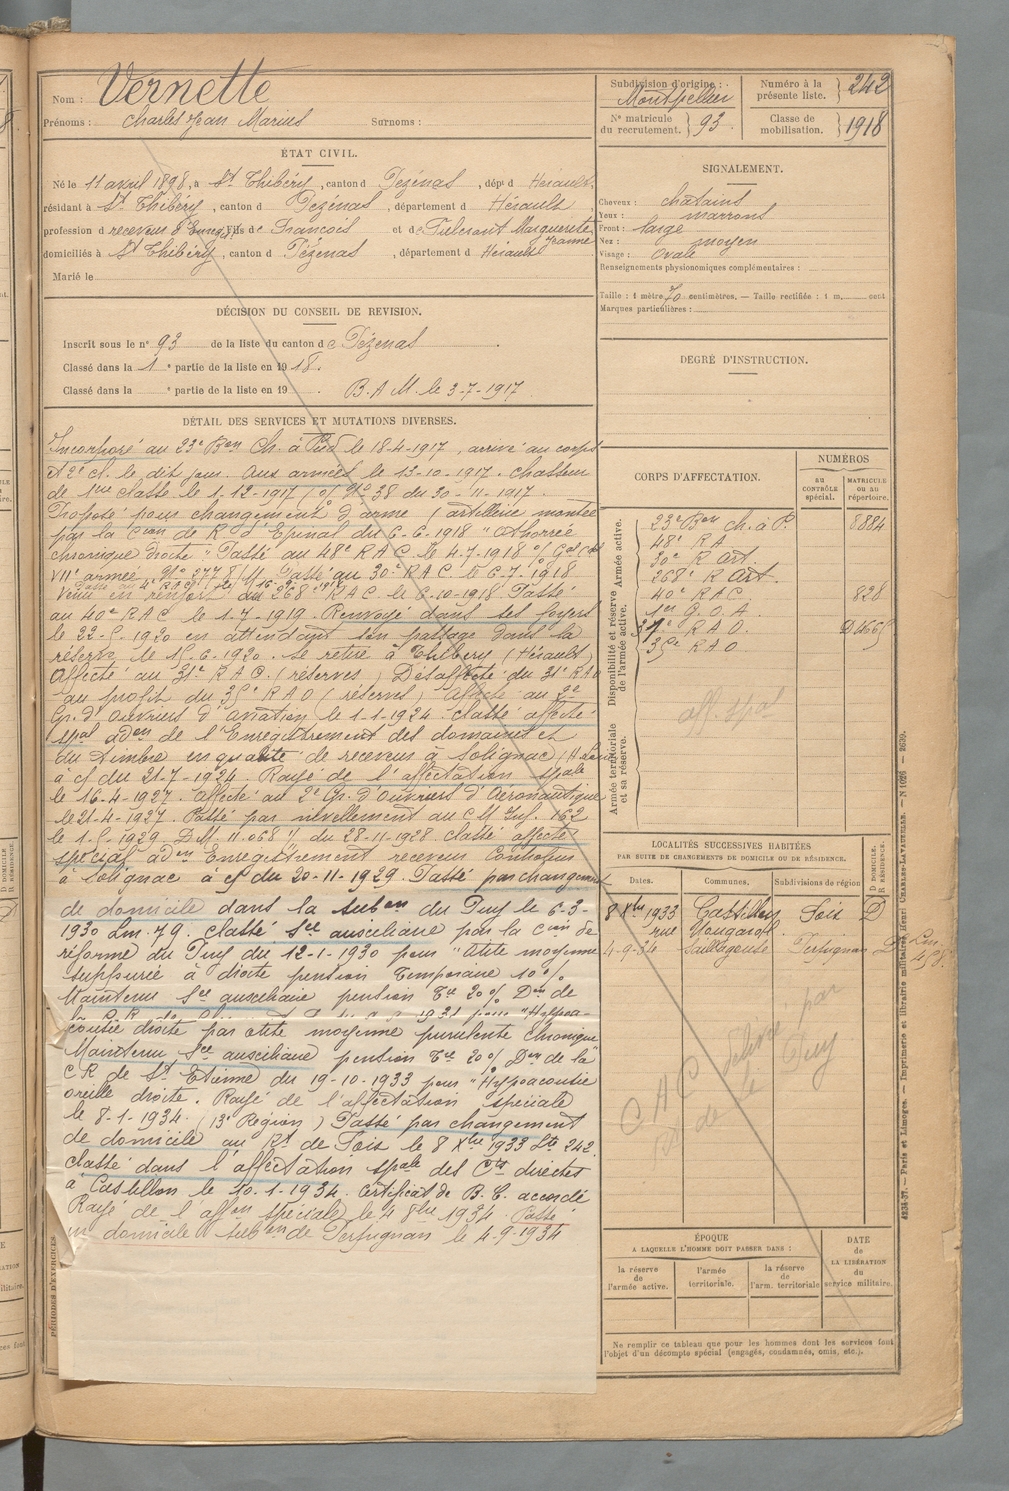 Nom : Vernette
Prénoms : Charles Jean Marius Surnoms :
Subdivision d'origine : Montpellier
Numéro à la présente liste. 242
N° matricule du recrutement. 93.
Classe de mobilisation. 1918
ÉTAT CIVIL.
Né le 11 avril 1898, à St Thibéry, canton d Pézenas, dépt d Hérault,
résidant à St Thibéry, canton d Pézenas, département d Hérault,
profession d receveur d'Enreg. Fils de François et de Fulcrant Marguerite Jeanne
domiciliés à St Thibéry, canton d Pézenas, département d Hérault
Marié le
SIGNALEMENT.
Cheveux : chatains
Yeux : marrons
Front : large
Nez : moyen
Visage : ovale
Renseignements physionomiques complémentaires :
Taille : 1 mètre 70 centimètres. — Taille rectifiée : 1 m. cent
Marques particulières :
DÉCISION DU CONSEIL DE REVISION.
Inscrit sous le n° 93 de la liste du canton de Pézenas.
Classé dans la 1e partie de la liste en 1918.
Classé dans la e partie de la liste en 19 B.A M. le 3-7-1917
DEGRÉ D'INSTRUCTION.
DÉTAIL DES SERVICES ET MUTATIONS DIVERSES.
Incorporé au 23e Bon Ch. à Pied le 18-4-1917, arrivé au corps
et 2e cl. le dit jour. Aux armées le 13-10-1917. Chasseur
de 1ère classe le 1-12-1917 (O/ No 38 du 30-11-1917.
Proposé pour changement d'arme (artillerie montée
par la Cion de R d'Epinal du 6-6-1918 "Othorrée
chronique droite" Passé au 48e RAC le 4-7-1918 O/ Gal Cdt
VIIe armée No 2778/M. Passé au 30e RAC. le 6-7-1918
Venu en renfort du 268e RAC le 6-10-1918 Passé
au 40e RAC le 1-7-1919. Renvoyé dans ses foyers
le 22-5-1920 en attendant son passage dans la
réserve le 15-6-1920. Se retire à Thibéry (Hérault)
Affecté au 31e RAC (réserves) Désaffecté du 31e RAC
au profit du 35e RAO (réserves) Affecté au 2e
Gr. d'ouvriers d'aviation le 1-1-1924. Classé affecté
spal adon de l'Enregistrement des domaines et
du timbre en qualité de receveur à Solignac (H. Loire)
à cf du 21-7-1924. Rayé de l'affectation spale
le 16-4-1927. Affecté au 2e Gr. d'ouvriers d'Aéronautique
le 21-4-1927. Passé par nivellement au CM Inf. 162
le 1-5-1929. DM. 11.068 1/1 du 28-11-1928 classé affecté
spécial adon Enregistrement receveur Controleur
à Solignac à cf du 20-11-1929. Passé par changement
de domicile dans la subon du Puy le 6-3-
1930 Lm. 79. Classé Sce auxiliaire par la Cion de
réforme du Puy du 12-1-1930 pour "Otite moyenne
suppurée à droite pension temporaire 10%
Maintenu Sce auxiliaire pension Tre 20% Don de
coutie droite par otite moyenne purulente chronique
Maintenu Sce auxiliaire pension Tre 20% Don de la
CR de St Etienne du 19-10-1933 pour "Hypoacousie
oreille droite. Rayé de l'affectation spéciale
le 8-1-1934 (13e Région) Passé par changement
de domicile au Rt de Foix le 8 Xbre 1933 Lte 242.
classé dans l'affectation spale des Cons directes
à Castillon le 10-1-1934. Certificat de B.C. accordé
Rayé de l'affon spéciale le 4 8bre 1934. Passé
domicile subon de Perpignan le 4-9-1934
PÉRIODES D'EXERCICES.
CORPS D'AFFECTATION.
NUMÉROS
AU CONTRÔLE spécial.
MATRICULE OU AU répertoire.
Armée active.
Disponibilité et réserve de l'armée active.
Armée territoriale et sa réserve.
23e Bon Ch. à P. 8884
48e RA
30e R Art
268e R Art.
40e RAC. 828
1er G.O.A.
31e RAO. D 4665
35e RAO
aff. spal
LOCALITÉS SUCCESSIVES HABITÉES
PAR SUITE DE CHANGEMENTS DE DOMICILE OU DE RÉSIDENCE.
Dates. Communes. Subdivisions de région D DOMICILE. R RÉSIDENCE.
8 Xbre 1933 Castillon Foix D
rue
4-9-34 Saillagouse Perpignan D
CAC délivré par
Rt de le Puy
ÉPOQUE
A LAQUELLE L'HOMME DOIT PASSER DANS :
la réserve de l'armée active.
l'armée territoriale.
la réserve de l'arm. territoriale
DATE de LA LIBÉRATION du service militaire.
Ne remplir ce tableau que pour les hommes dont les services font
l'objet d'un décompte spécial (engagés, condamnés, omis, etc.).
4234-37. — Paris et Limoges. — Imprimerie et librairie militaires Henri CHARLES-LAVAUZELLE. — N 1029 — 2639.